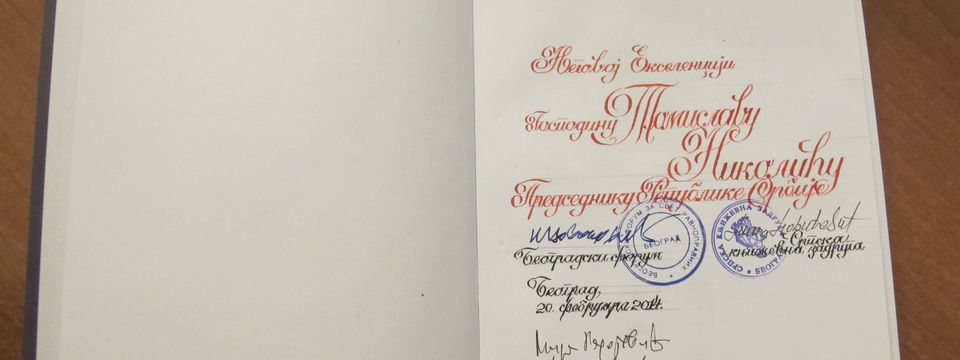 Његовој Екселенцији
Господину Томиславу
Николићу
Председнику Републике Србије
БЕОГРАДСКИ ФОРУМ ЗА СВЕТ РАВНОПРАВНИХ
БЕОГРАД
СРПСКА КЊИЖЕВНА ЗАДРУГА
БЕОГРАД
Београдски форум
Српска
књижевна задруга
Београд,
20. фебруара 2014.